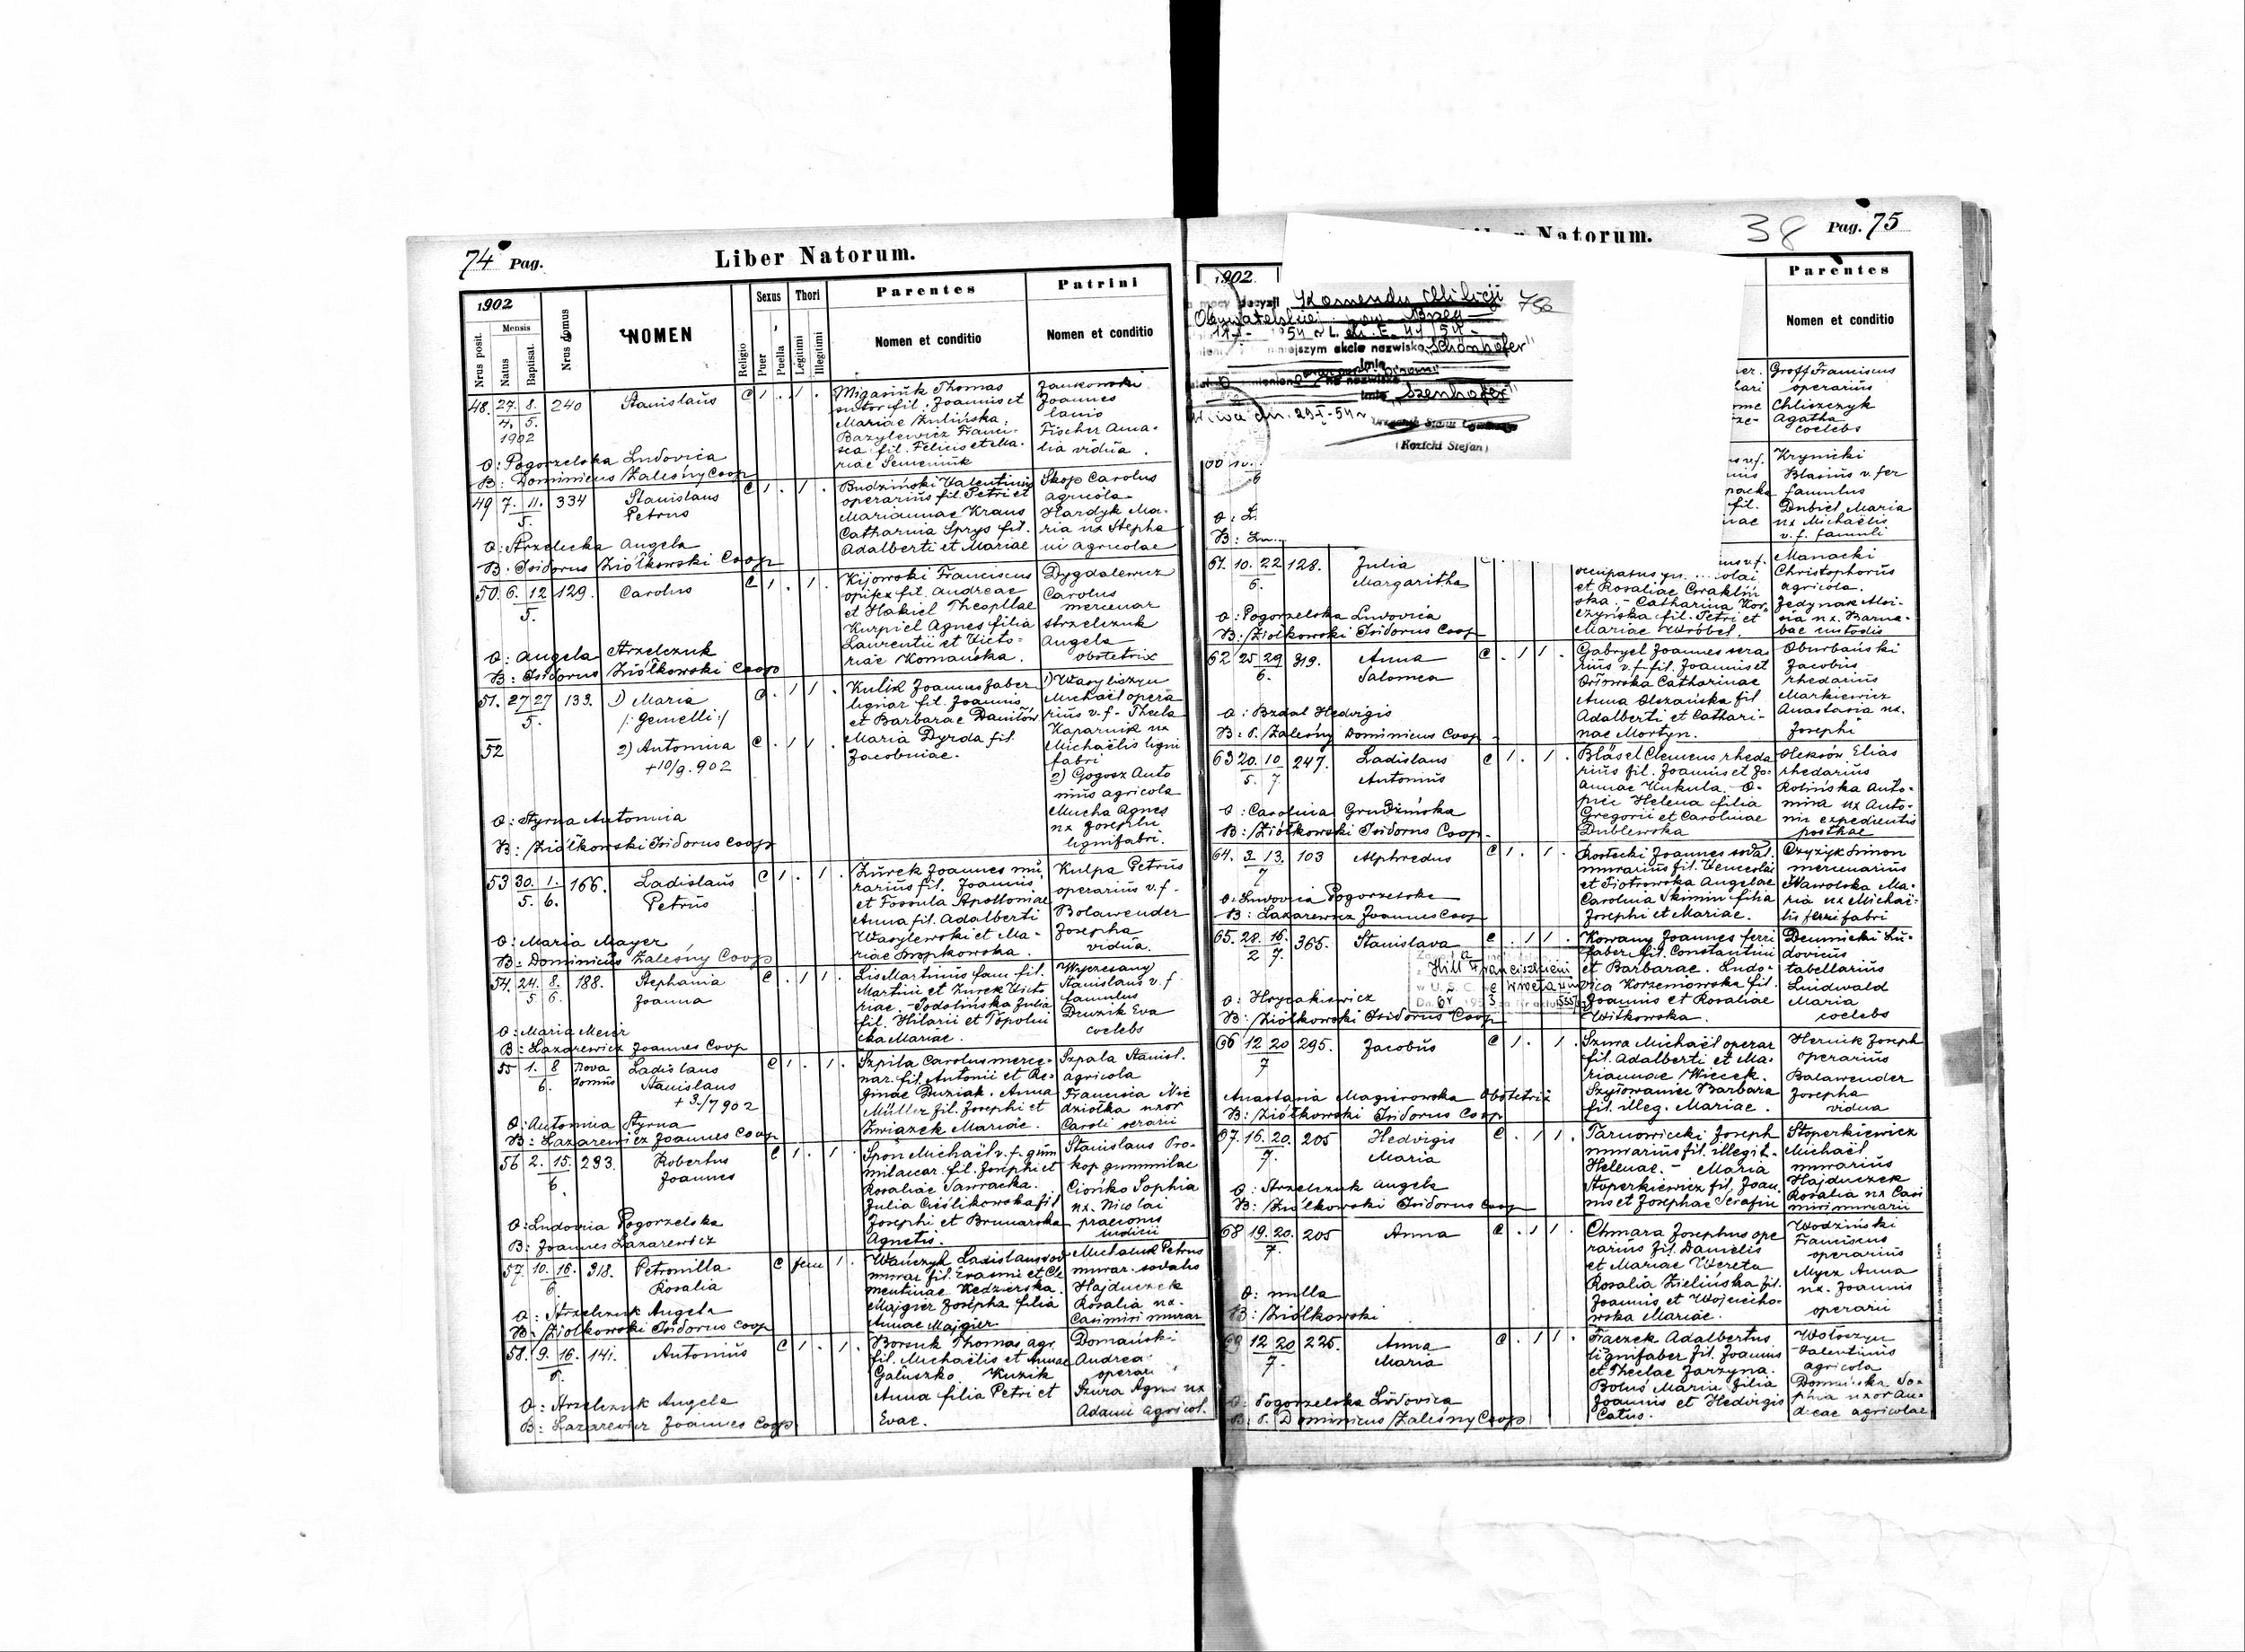 74 Pag.
Liber Natorum.
1902
Nrus posit.
Mensis
Natus
Baptisat.
Nrus domus
NOMEN
Religio
Sexus
Puer
Puella
Thori
Legitimi
Illegitimi
Parentes
Nomen et conditio
Patrini
Nomen et conditio
48. 27. 8. 240 Stanislaus
4. 5.
1902
Migasiuk Thomas
sutor fil. Joannis et
Mariae Żulińska
Bazylewicz Franci-
sca fil. Felicis et Ma-
riae Semeniuk
Jankowski
Joannes
lanio
Fischer Ama-
lia vidua.
O: Pogorzelska Ludovica
B: Dominicus Zaleśny Coop
49 7. 11. 334 Stanislaus
5. Petrus
Budziński Valentinus
operarius fil. Petri et
Mariannae Kraus
Catharina Sprys fil.
Adalberti et Mariae
Skop Carolus
agricola
Hardyk Ma-
ria ux Stepha
ni agricolae
O: Strzelecka Angela
B: Isidorus Ziółkowski Coop
50. 6. 12 129. Carolus
5.
Kijowski Franciscus
opifex fil. Andreae
et Hakiel Theophilae
Kurpiel Agnes filia
Laurentii et Victo-
riae Komańska.
Dygdalewicz
Carolus
mercenar
Strzelczuk
Angela
obstetrix
O: Angela Strzelczuk
B: Isidorus Ziółkowski Coop
51. 27 27 133. 1) Maria
5. /: gemelli :/
52 2) Antonina
+ 10/9. 902
Kulik Joannes faber
lignar fil. Joannis
et Barbarae Daniłów
Maria Dyrda fil.
Jacobinae.
1) Wasyliszyn
Michaël opera
rius v.f. - Thecla
Kaparnik ux
Michaëlis ligni
fabri
2) Gogosz Anto
nius agricola
Mucha Agnes
ux Josephi
lignifabri.
O: Styrna Antonina
B: Ziółkowski Isidorus Coop
53 30. 1. 166. Ladislaus
5. 6. Petrus
Żurek Joannes mu
rarius fil. Joannis
et Fossula Apolloniae
Anna fil. Adalberti
Wasylewski et Ma-
riae Snopkowska.
Kulpa Petrus
operarius v.f.
Bolawender
Josepha
vidua.
O: Maria Mayer
B: Dominicus Zaleśny Coop
54. 24. 8. 188. Stephania
5 6. Joanna
Lis Martinus fam fil.
Martini et Żurek Victo
riae - Podolińska Julia
fil. Hilarii et Topolni
cka Mariae.
Wyczesany
Stanislaus v.f
famulus
Druzik Eva
coelebs
O: Maria Meier
B: Lazarewicz Joannes Coop
55 1. 8 nova domus Ladislaus
6. Stanislaus
+ 3./7 902
Szpila Carolus merce-
nar. fil. Antonii et Re-
ginae Duziak. Anna
Müller fil. Josephi et
Związek Mariae.
Szpala Stanisl.
agricola
Francisca Nie
dziołka uxor
Caroli serarii
O: Antonina Styrna
B: Lazarewicz Joannes Coop
56 2. 15. 293. Robertus
6. Joannes
Spon Michaël v.f. gum
milaccar. fil. Josephi et
Rosaliae Sawracka.
Julia Cieślikowska fil
Josephi et Brunarska
Agnetis.
Stanislaus Pro-
kop gummilac
Cionko Sophia
ux. Nicolai
praeconis
iudicii
O: Ludovica Pogorzelska
B: Joannes Lazarewicz
57. 10. 16. 318. Petronilla
6 Rosalia
fem
Wańczyk Ladislaus sod
murar fil. Erasmi et Cle
mentinae Kedzierska.
Majgier Josepha filia
Annae Majgier.
Michaluk Petrus
murar. sodalis
Hajduczek
Rosalia ux.
Casimiri murar
O: Strzelczuk Angela
B: Ziółkowski Isidorus Coop
58. 9. 16. 141. Antonius
6.
Borsuk Thomas agr.
fil. Michaëlis et Annae
Galuszko Kuzik
Anna filia Petri et
Evae.
Domański
Andrea
operar
Szura Agnes ux
Adami agricol.
O: Strzelczuk Angela
B: Lazarewicz Joannes Coop.
Natorum.
38
Pag. 75
1902.
Parentes
Nomen et conditio
mocy decyzji Komendy Milicji
Obywatelskiej pow. Brzeg
76
niejszym akcie nazwisko "Schönhöfer"
Imię
na nazwisko
Imię "Szenhofer"
dn. 29-I-54 r.
Urzędnik Stanu Cywilnego
(Kozicki Stefan)
Groff Franciscus
operarius
Chliszczyk
Agatha
coelebs
Krynicki
Blasius v. fer
famulus
Dubiel Maria
ux Michaëlis
v.f. famuli
61. 10. 22 128. Julia
6. Margaritha
et Rosaliae Coraklin
ska. - Catharina Kor-
czyńska fil. Petri et
Mariae Wróbel.
Manacki
Christophorus
agricola.
Jedynak Aloi-
sia ux. Barna-
bae custodis
O: Pogorzelska Ludovica
B: Ziółkowski Isidorus Coop
62 25 29 319. Anna
6. Salomea
Gabryel Joannes sera
rius v.f. fil. Joannis et
Orłowska Catharinae
Anna Olszańska fil
Adalberti et Cathari-
nae Mortyn.
Oburbański
Jacobus
rhedarius
Markiewicz
Anastasia ux.
Josephi
O: Brdal Hedvigis
B: P. Zaleśny Dominicus Coop
63 20. 10 247. Ladislaus
5. 7. Antonius
Bläsel Clemens rheda
rius fil. Joannis et Jo-
annae Kukula. O-
pich Helena filia
Gregorii et Carolinae
Dublewska
Oleksów Elias
rhedarius
Rolińska Anto-
nina ux Anto-
nii expedientis
posthae
O: Carolina Grudzińska
B: Ziółkowski Isidorus Coop
64. 3 13. 103 Alphredus
7
Rostecki Joannes sodal.
murarius fil. Venceslai
et Piotrowska Angelae
Carolina Skimin filia
Josephi et Mariae.
Czyżyk Simon
mercenarius
Nawolska Ma-
ria ux Michaë-
lis ferri fabri
O: Ludovica Pogorzelska
B: Lazarewicz Joannes Coop
65. 28. 16. 365. Stanislava
2 7.
Hill Franciszkiem
Kowany Joannes ferri
faber fil. Constantini
et Barbarae. Ludo-
vica Korzeniowska fil.
Joannis et Rosaliae
Witkowska.
Deunicki Lu-
dovicus
tabellarius
Luidwald
Maria
coelebs
O: Hrycakiewicz
B: Ziółkowski Isidorus Coop
66 12 20 295. Jacobus
7
Szura Michaël operar
fil. Adalberti et Ma-
riannae Wiecek.
Szyłowaniec Barbara
fil. illeg. Mariae.
Hernik Joseph
operarius
Balawender
Josepha
vidua
Anastasia Magierowska obstetrix
B: Ziółkowski Isidorus Coop
67. 16. 20. 205 Hedvigis
7. Maria
Tarnowiecki Joseph
murarius fil. illegit-
Helenae. - Maria
Stoperkiewicz fil. Joan
nis et Josephae Serafin
Stoperkiewicz
Michaël
murarius
Hajduczek
Rosalia ux Casi
miri murarii
O: Strzelczuk Angela
B: Ziółkowski Isidorus Coop
68 19. 20. 205 Anna
7.
Chmara Josephus ope
rarius fil. Danielis
et Mariae Wereta
Rosalia Zielińska fil.
Joannis et Wojciecho-
wska Mariae.
Wodziński
Franciscus
operarius
Mycz Anna
ux. Joannis
operarii
O: nulla
B: Ziółkowski
69 12 20 225. Anna
7. Maria
Frączek Adalbertus
lignifaber fil. Joannis
et Theclae Jarzyna.
Boluś Maria filia
Joannis et Hedvigis
Catus.
Wołoszyn
Valentinus
agricola
Domańska So-
phia uxor An-
dreae agricolae
O: Pogorzelska Ludovica
B: P. Dominicus Zaleśny Coop